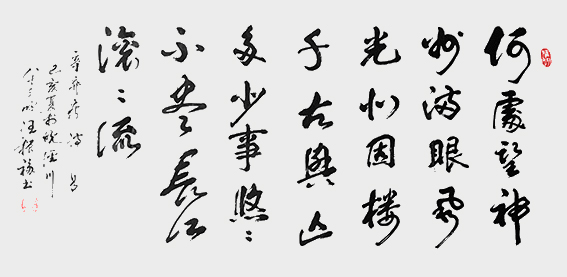 何處望神
州满眼風
光北固楼
千古興亡
多少事悠〻
不盡長江
滚〻流
辛弃疾
己亥夏
八十三